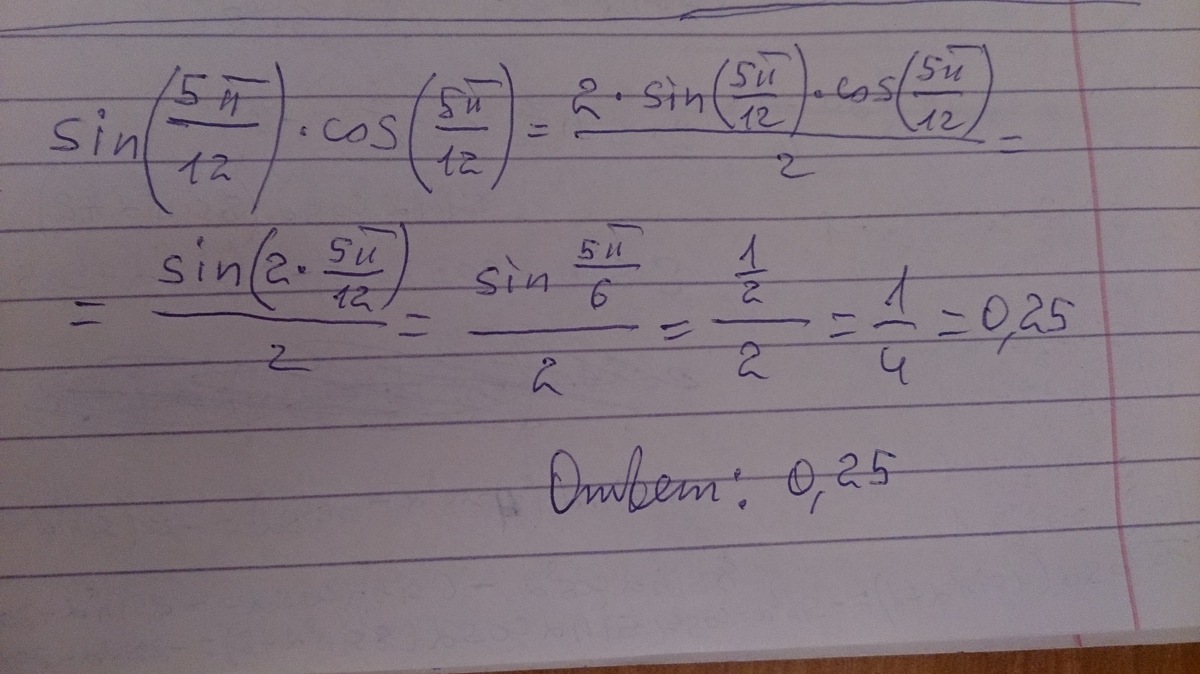 sin(5π/12) · cos(5π/12) = (2 · sin(5π/12) · cos(5π/12))/2 =
= sin(2 · 5π/12)/2 = (sin 5π/6)/2 = (1/2)/2 = 1/4 = 0,25
Ответ: 0,25